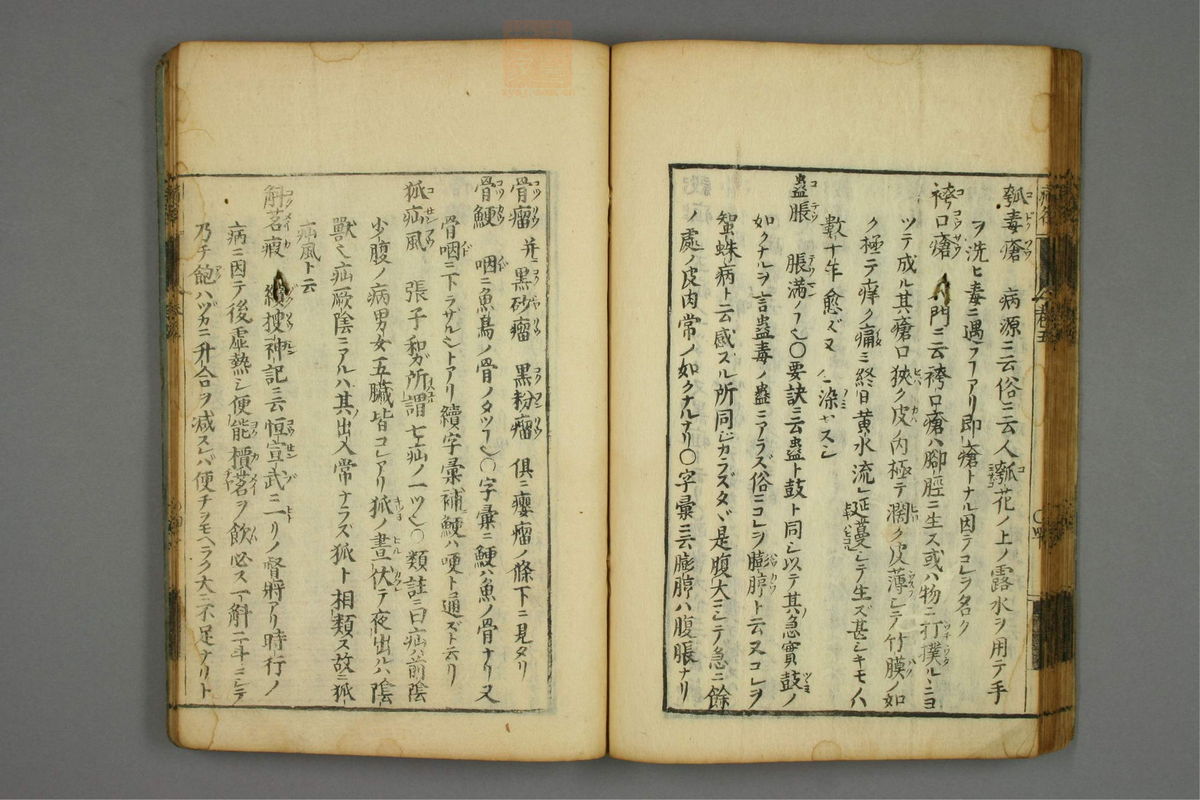 瓠毒瘡 病源ニ云俗ニ云人瓠花ノ上ノ露水ヲ用テ手
ヲ洗ヒ毒ニ遇フアリ即瘡トナル因テコレヲ名ク
袴口瘡 門ニ云袴口瘡ハ脚脛ニ生ス或ハ物ニ打撲ルヽニヨ
ツテ成ル其瘡口狹ク皮内極テ濶ク皮薄シテ竹膜ノ如
ク極テ痒ク痛ミ終日黄水流レ延蔓シテ生ズ甚シキモノハ
數十年愈ズ又 染ヤスシ
蠱脹 脹滿ノ 〇要訣ニ云蠱ト鼓ト同シ以テ其急實鼓ノ
如クナルヲ言蠱毒ノ蠱ニアラズ俗ニコレヲ膨脝ト云又コレヲ
蜘蛛病ト云感ズル所同ジカラズタヾ是腹大ニシテ急ニ餘
ノ處ノ皮肉常ノ如クナルナリ〇字彙ニ云膨脝ハ腹脹ナリ
骨瘤 并ニ黒砂瘤 黒粉瘤 俱ニ癭瘤ノ條下ニ見タリ
骨鯁 咽ニ魚鳥ノ骨ノタツ 〇字彙ニ鯁ハ魚ノ骨ナリ又
骨咽ニ下ラザル トアリ續字彙補鯁ハ哽ト通ズト云リ
狐疝風 張子和ガ所謂七疝ノ一ツ 〇類註ニ曰疝ハ前陰
少腹ノ病男女五臓皆コレアリ狐ノ晝伏テ夜出ルハ陰
獸 疝厥陰ニアルハ其出入常ナラズ狐ト相類ス故ニ狐
疝風ト云
斛茗瘕 續搜神記ニ云恒宣武ニ一リノ督將アリ時行ノ
病ニ因テ後虚熱シ便能 茗ヲ飲必ス一斛二斗ニシテ
乃チ飽ハヅカニ升合ヲ減スレバ便チヲモヘラク大ニ不足ナリト